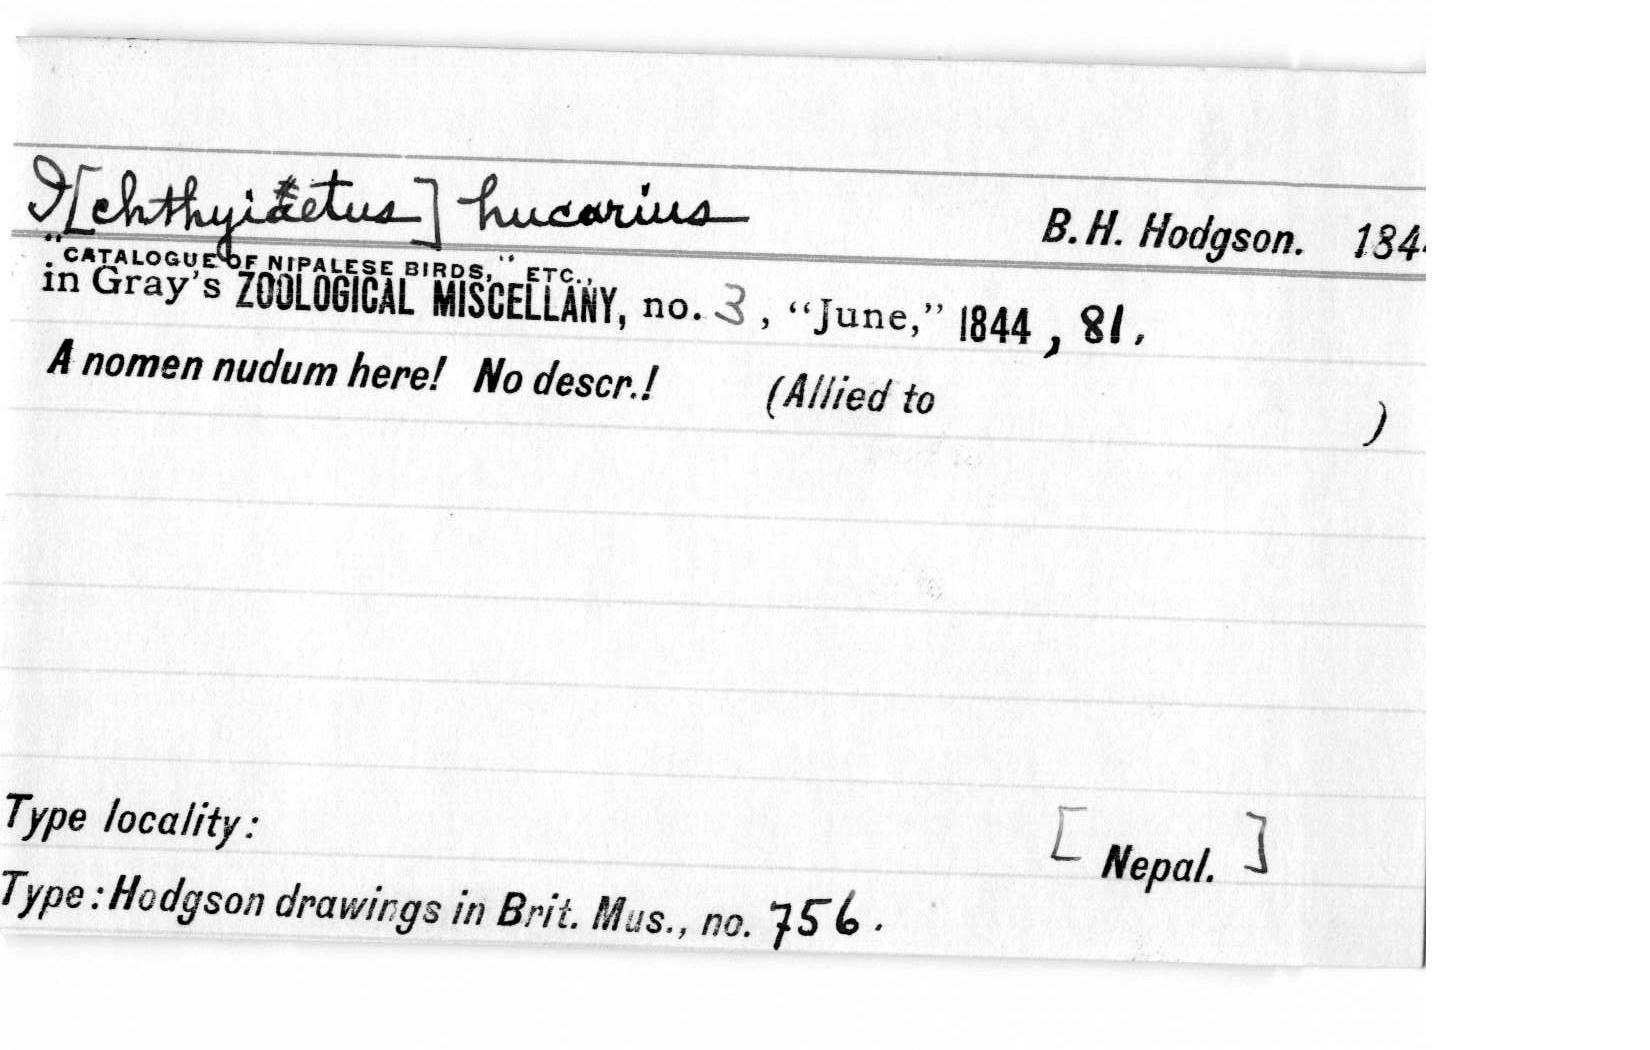 I[chthyiaetus] hucarius B. H. Hodgson. 184
"CATALOGUE OF NIPALESE BIRDS," ETC.,
in Gray's ZOOLOGICAL MISCELLANY, no. 3, "June," 1844, 81.
A nomen nudum here! No descr.! (Allied to )
Type locality: [Nepal.]
Type: Hodgson drawings in Brit. Mus., no. 756.